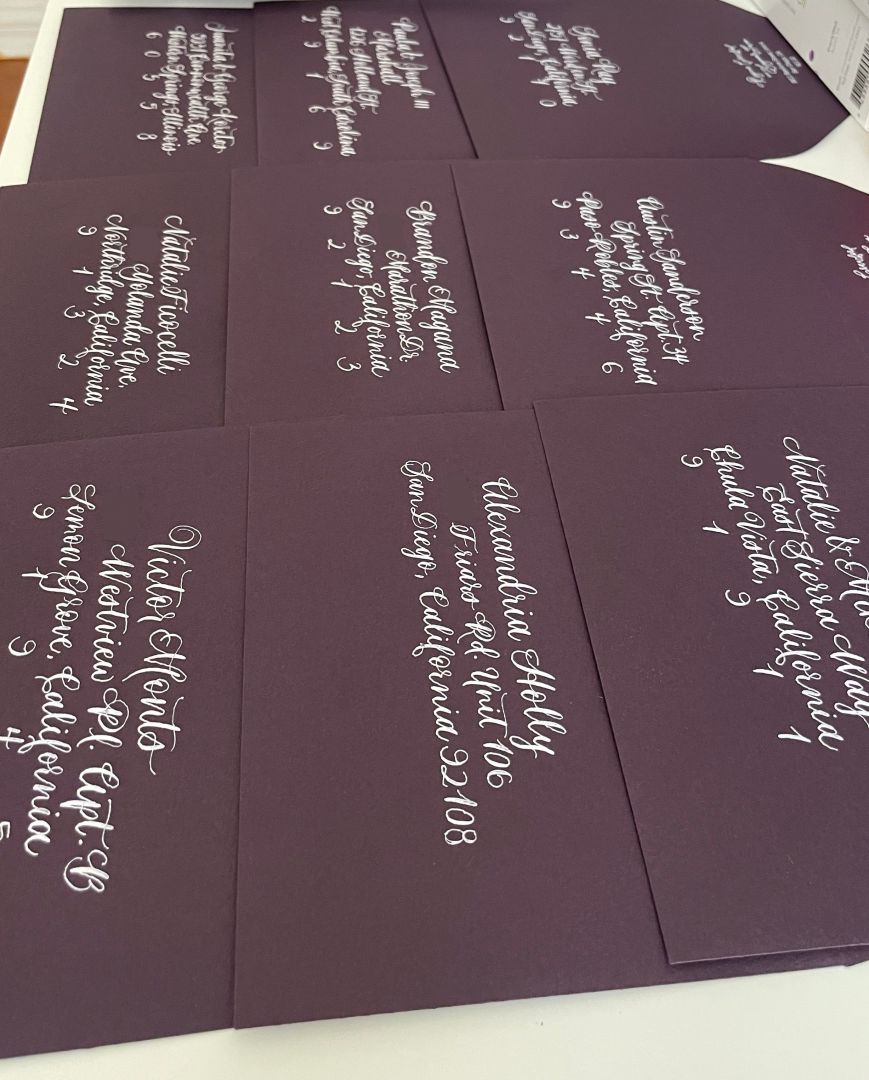 George
Commonwealth Ave.
Western Springs, Illinois
6 0 5 5 8
Joseph III
West Columbia, South Carolina
2 9 1 6 9
California
Natalie Ficocelli
Yolanda Ave.
Northridge, California
9 1 3 2 4
Brandon Magana
Marathon Dr.
San Diego, California
9 2 1 2 3
Austin Sanderson
Spring St. Apt. 34
Paso Robles, California
9 3 4 4 6
Victor Monts
Westview Pl. Apt. B
Lemon Grove, California
9 1 9 4 5
Alexandria Holly
Friars Rd. Unit 106
San Diego, California 92108
Natalie &
East Sierra Way
Chula Vista, California
9 1 9 1 1